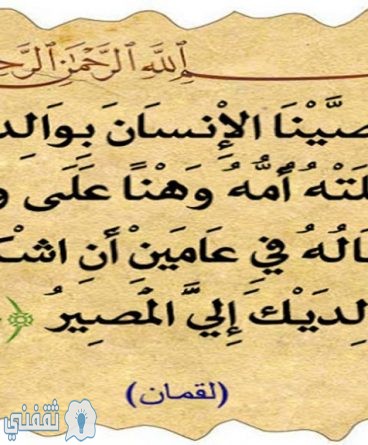 ـمِ ٱللَّهِ ٱلرَّحْمَٰنِ ٱلرَّحِـ
صَّيْنَا الْإِنسَانَ بِوَالِد
لَتْهُ أُمُّهُ وَهْنًا عَلَى و
ـالُهُ فِي عَامَيْنِ أَنِ اشْكـ
لِدَيْكَ إِلَيَّ الْمَصِيرُ ﴿
(لقمان)
ثقفني